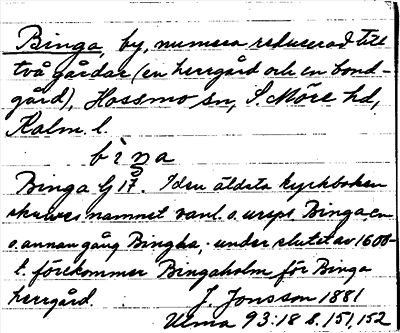 Binga, by, numera reducerad till
två gårdar (en herrgård och en bond-
gård), Hossmo sn, S. Möre hd,
Kalm. l.
bìŋa
Binga G 17. I den äldsta kyrkboken
skrives namnet vanl. o. urspr. Binga, en
o. annan gång Bingha, under slutet av 1600-
t. förekommer Bingaholm för Binga
herrgård. J. Jonsson 1881
Ulma 93:18 s. 151, 152